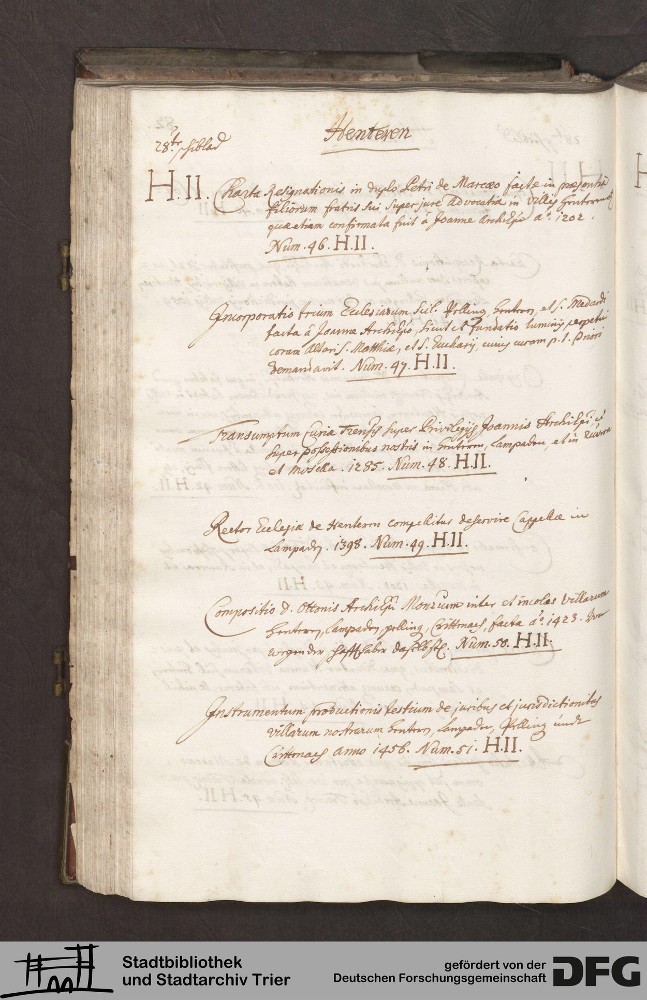 Henteren
28te schiblad
H.II. Charta Resignationis in duplo Petri de Marcæo facte in præsentia
filiorum fratris sui super jure advocatiæ in villis
quæ etiam confirmata fuit â Joanne ArchiEpō aō. 1202.
Num. 46. H.II.
Incorporatio trium Ecclesiarum Scil. Polling, Hentern, et S. Medardi
facta â Joanne ArchiEpō, sicut et fundatio luminis perpetui
coram altari S. Matthiæ, et S. Eucharij, cuius curam p.t. Priori
demandavit. Num. 47. H.II.
Transumptum Curiæ Trensis super Privilegijs Joannis ArchiEpi et
super possessionibus nostris in Hentern, Lampaden, et in
et Mosella. 1285. Num. 48. H.II.
Rector Ecclesiæ de Henteren compellitus deservire Cappellæ in
Lampaden. 1398. Num. 49. H.II.
Compositio D. Ottonis ArchiEpi Monrium inter et incolas villarum
Hentern, Lampaden, Polling, Crittnach, facta aō. 1423. Von
wegen der daselbst. Num. 50. H.II.
Instrumentum productionis testium de juribus et jurisdictionibus
villarum nostrarum Hentern, Lampaden, Polling undt
Crittenach anno 1456. Num. 51. H.II.
Stadtbibliothek
und Stadtarchiv Trier
gefördert von der
Deutschen Forschungsgemeinschaft
DFG